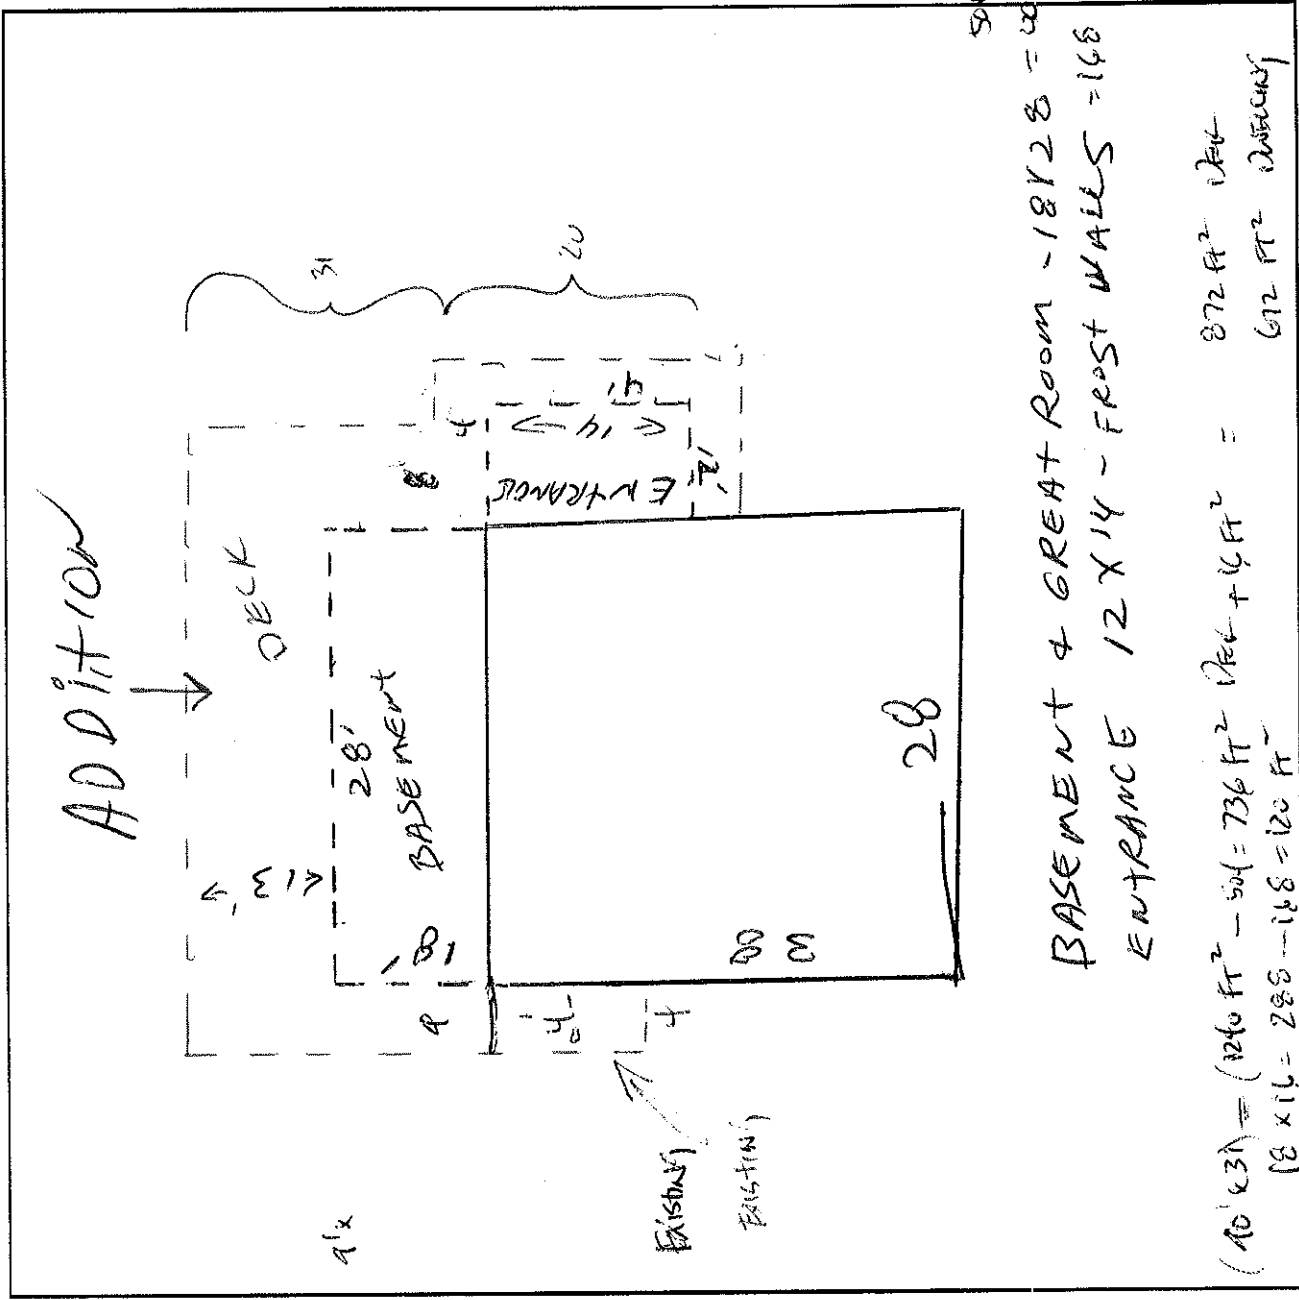 ADDiTiON
DECK
13'
28'
BASEMENT
18'
31
20
8
4
4'
14'
ENTRANCE
12'
4
28
EXISTING
EXISTING
9'x
BASEMENT & GREAT ROOM - 18X28 =
ENTRANCE 12 X 14 - FROST WALLS = 168
(40'x31) = (1240 FT² - 504 = 736 FT² DECK + 16 FT² = 872 FT² DECK
18 x 16 = 288 - 168 = 120 FT² 672 FT² DWELLING